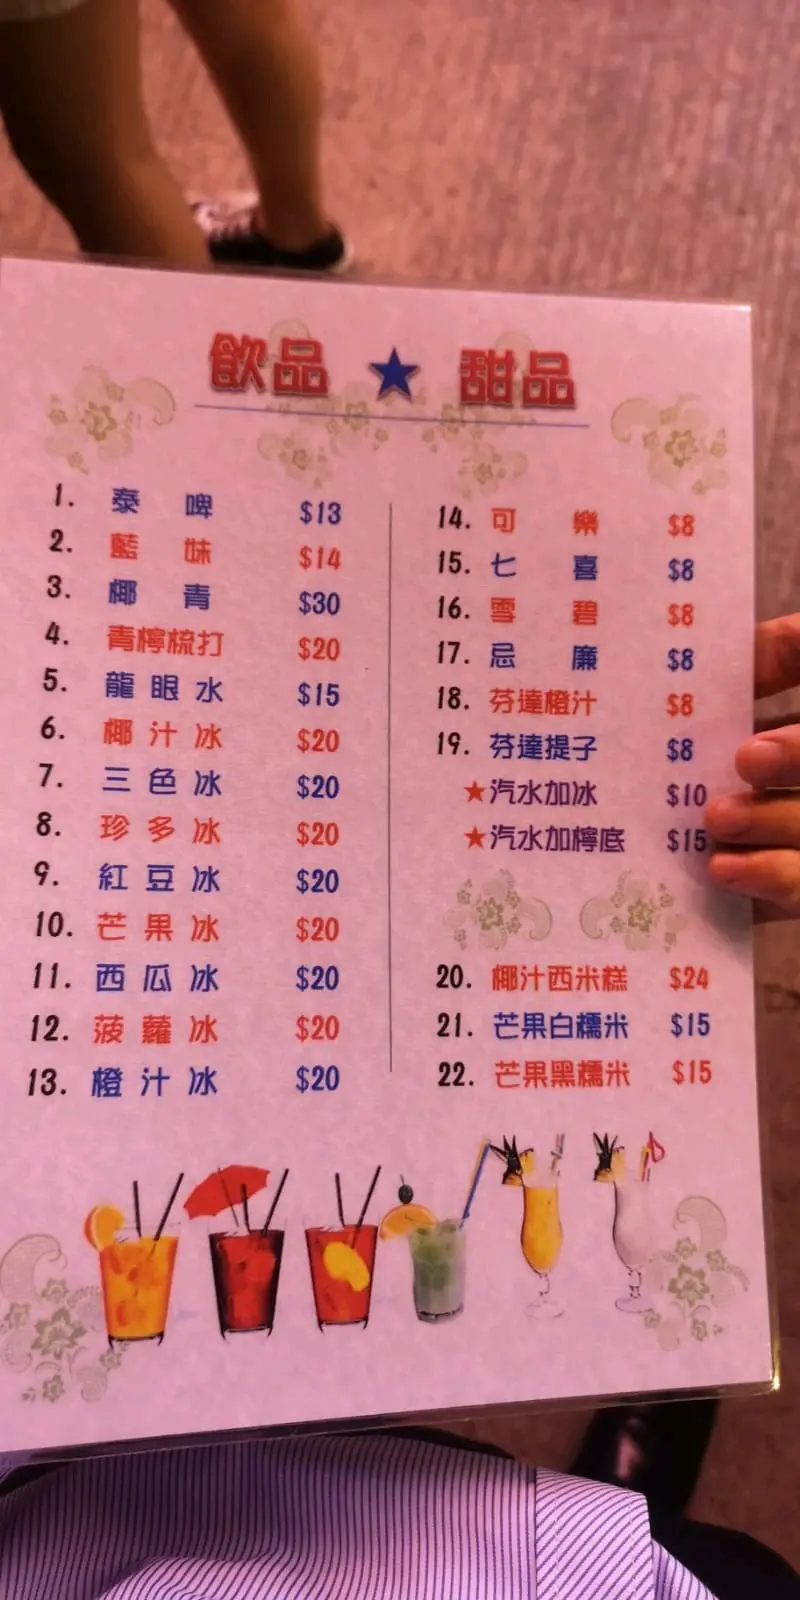 飲品 ★ 甜品
1. 泰啤 $13
2. 藍妹 $14
3. 椰青 $30
4. 青檸梳打 $20
5. 龍眼水 $15
6. 椰汁冰 $20
7. 三色冰 $20
8. 珍多冰 $20
9. 紅豆冰 $20
10. 芒果冰 $20
11. 西瓜冰 $20
12. 菠蘿冰 $20
13. 橙汁冰 $20
14. 可樂 $8
15. 七喜 $8
16. 雪碧 $8
17. 忌廉 $8
18. 芬達橙汁 $8
19. 芬達提子 $8
★汽水加冰 $10
★汽水加檸底 $15
20. 椰汁西米糕 $24
21. 芒果白糯米 $15
22. 芒果黑糯米 $15